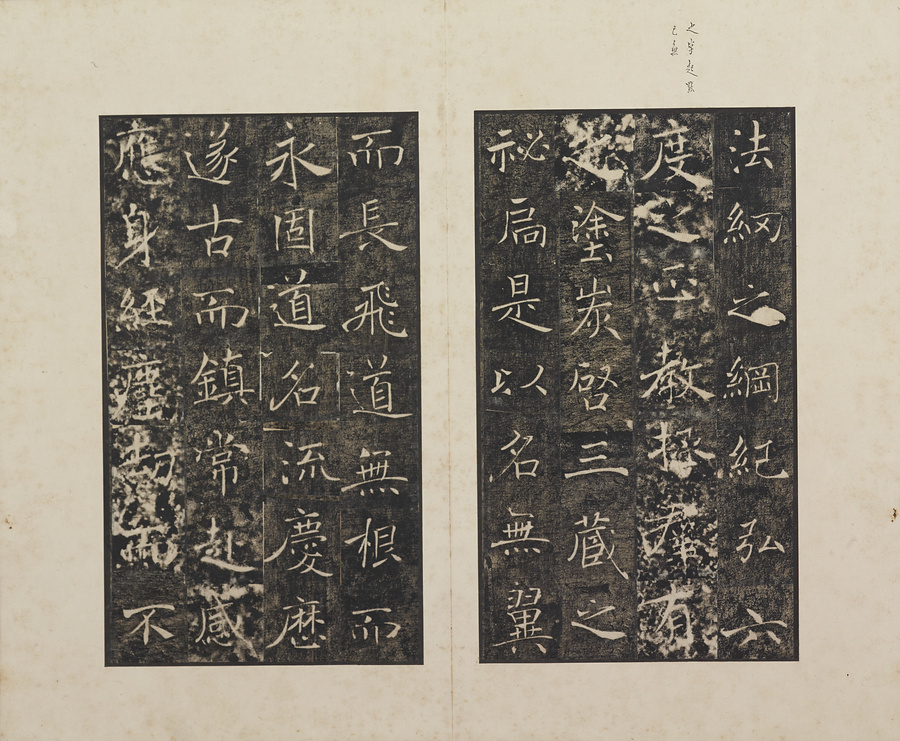 之字起點
已損
法網之綱紀弘六
度之正教拯群有
之塗炭啓三藏之
祕扃是以名無翼
而長飛道無根而
永固道名流慶歷
遂古而鎮常赴感
應身經塵劫而不